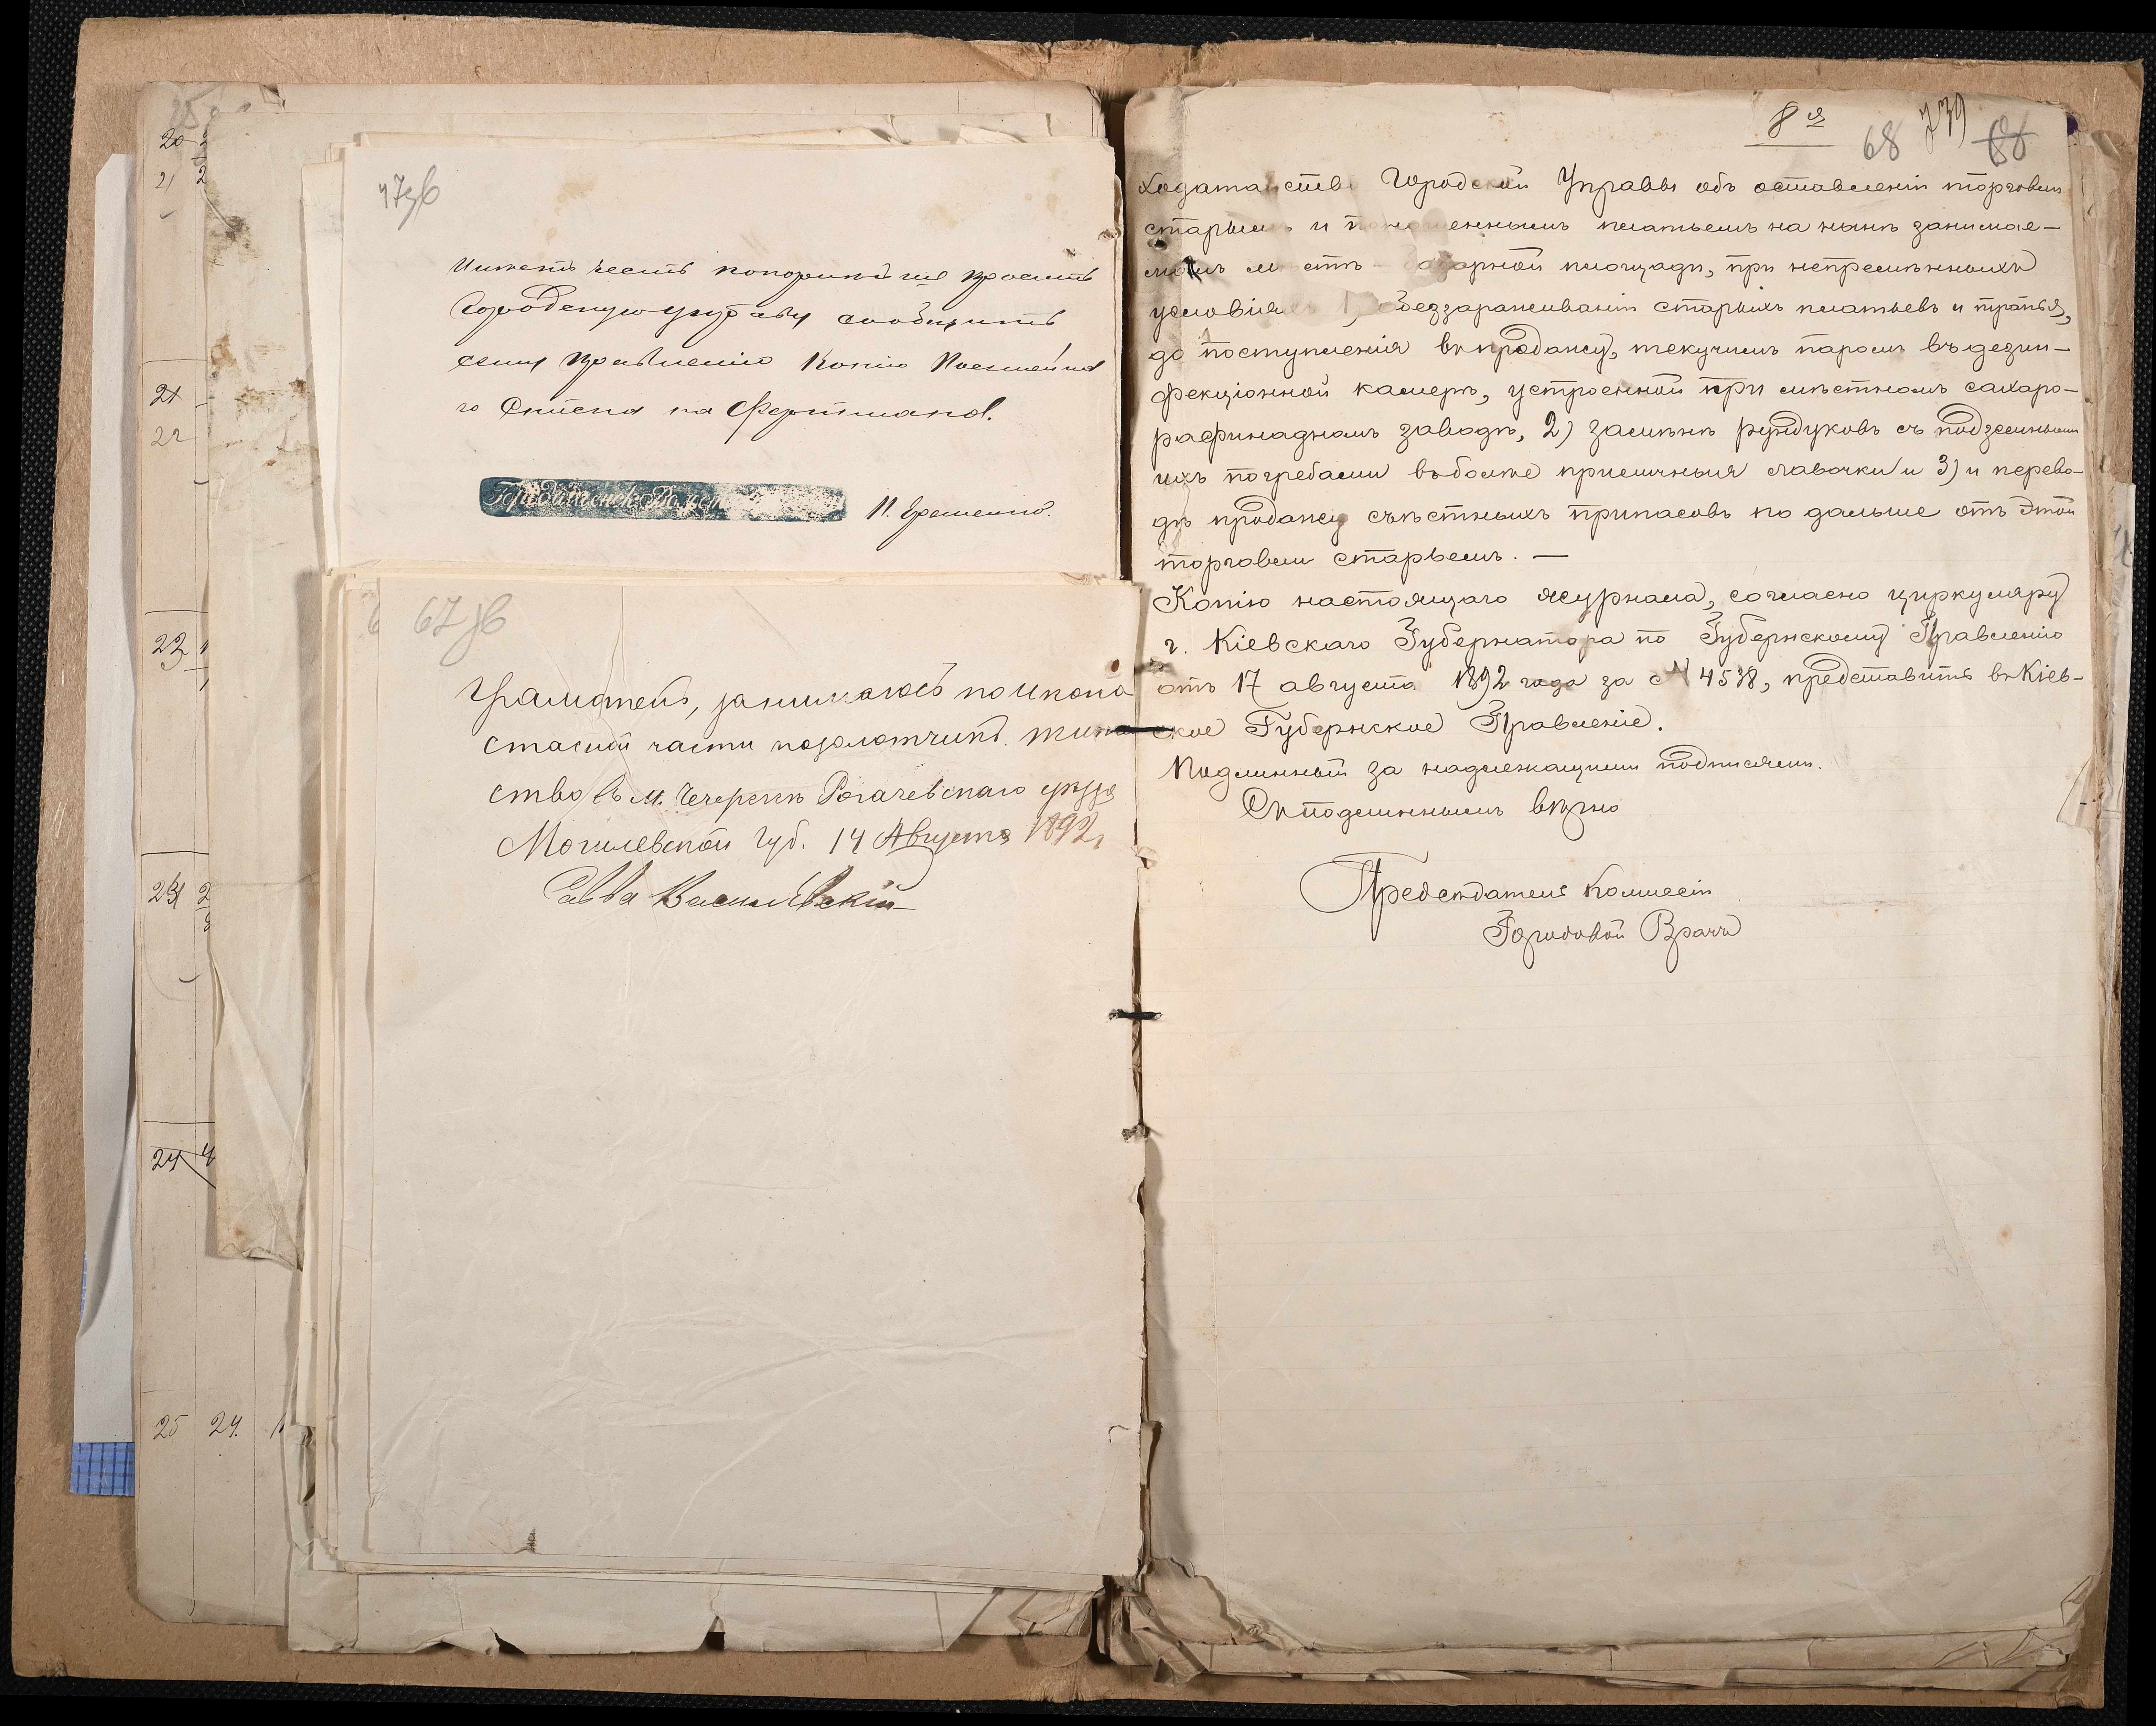 20
21
21
22
23
24
25 24.
47 зв
Имѣетъ честь покорнѣйше просить
Городскую управу сообщить
сему правленію копію Посемейна
го Списка на Фертмана.
Городищенск. Волост
И. Еременко.
67 зв
Грамотенъ, занимаюсь по иконо
стасной части позолотчика. жите
ство въ м. Чечерскѣ Рогачевскаго уѣзда
Могилевской Губ. 14 Августа 1892 г
Савва Василевскій
8я
68 739 68
ходатайств Городской Управы объ оставленіи торговли
старымъ и поношеннымъ платьемъ на нынѣ занимае-
момъ мѣстѣ - базарной площади, при непремѣнныхъ
условіяхъ 1, обеззараживаніи старыхъ платьевъ и тряпья,
до поступленія въ продажу, текучимъ паромъ въ дезин-
фекціонной камерѣ, устроенной при мѣстномъ сахаро-
рафинадномъ заводѣ, 2) замѣнѣ рундуковъ съ подземными
ихъ погребами въ болѣе приличныя лавочки и 3) и перево-
дѣ продажу съѣстныхъ припасовъ по дальше отъ этой
торговли старьемъ. —
Копію настоящаго журнала, согласно циркуляру
г. Кіевскаго Губернатора по Губернскому Правленію
отъ 17 августа 1892 года за № 4538, представить въ Кіев-
ское Губернское Правленіе.
Подлинный за надлежащими подписями.
Съ подлиннымъ вѣрно
Предсѣдатель Коммиссіи
Городовой Врачъ